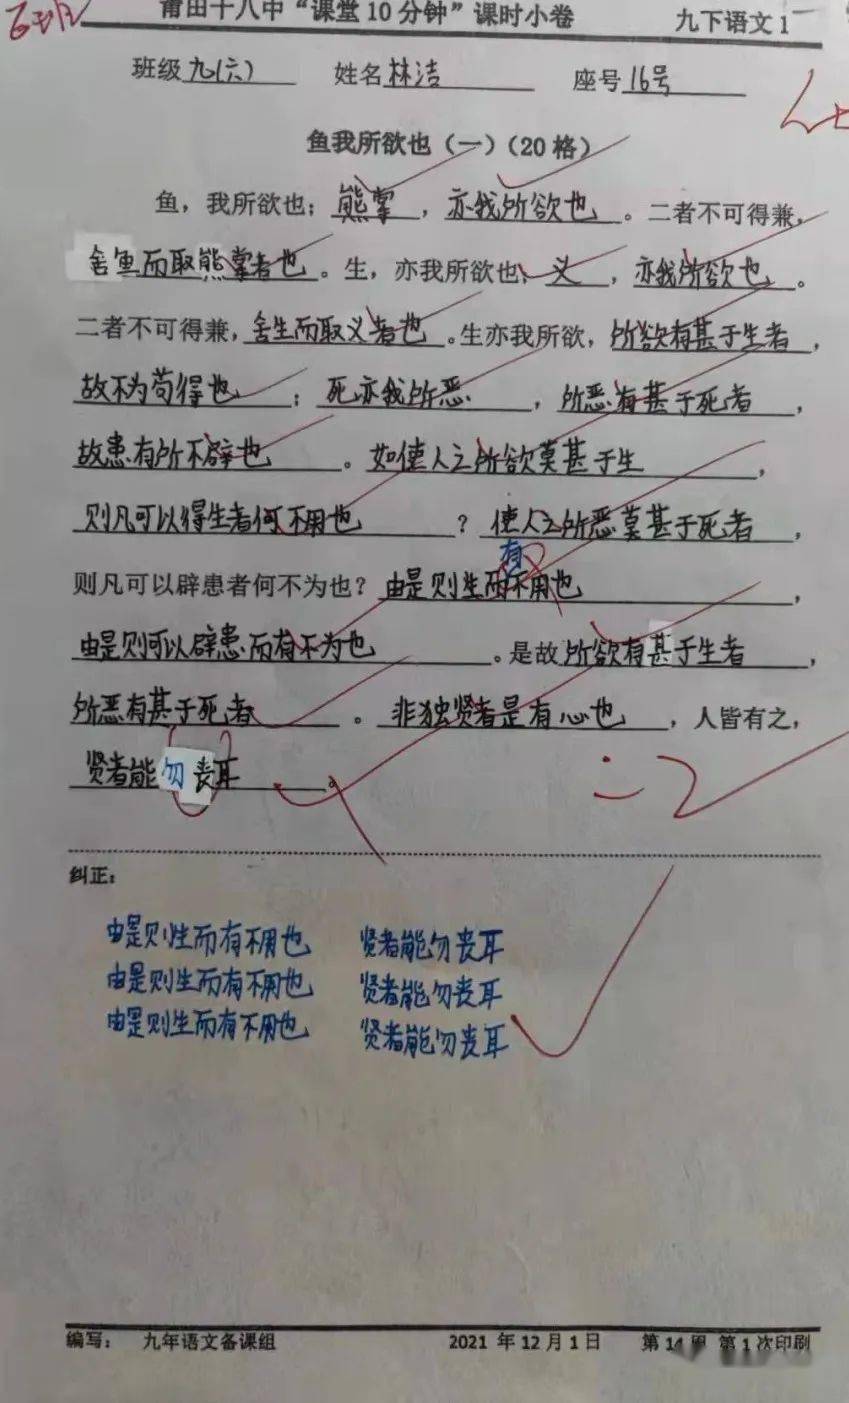 莆田十八中“课堂10分钟”课时小卷 九下语文1
班级九(六) 姓名林洁 座号16号
鱼我所欲也（一）（20格）
鱼，我所欲也；熊掌，亦我所欲也。二者不可得兼，
舍鱼而取熊掌者也。生，亦我所欲也；义，亦我所欲也。
二者不可得兼，舍生而取义者也。生亦我所欲，所欲有甚于生者，
故不为苟得也；死亦我所恶，所恶有甚于死者，
故患有所不辟也。如使人之所欲莫甚于生，
则凡可以得生者何不用也？使人之所恶莫甚于死者，
有
则凡可以辟患者何不为也？由是则生而不用也，
由是则可以辟患而有不为也。是故所欲有甚于生者，
所恶有甚于死者。非独贤者是有心也，人皆有之，
贤者能勿丧耳。
-2
纠正：
由是则生而有不用也 贤者能勿丧耳
由是则生而有不用也 贤者能勿丧耳
由是则生而有不用也 贤者能勿丧耳
编写： 九年语文备课组 2021年12月1日 第14周 第1次印刷